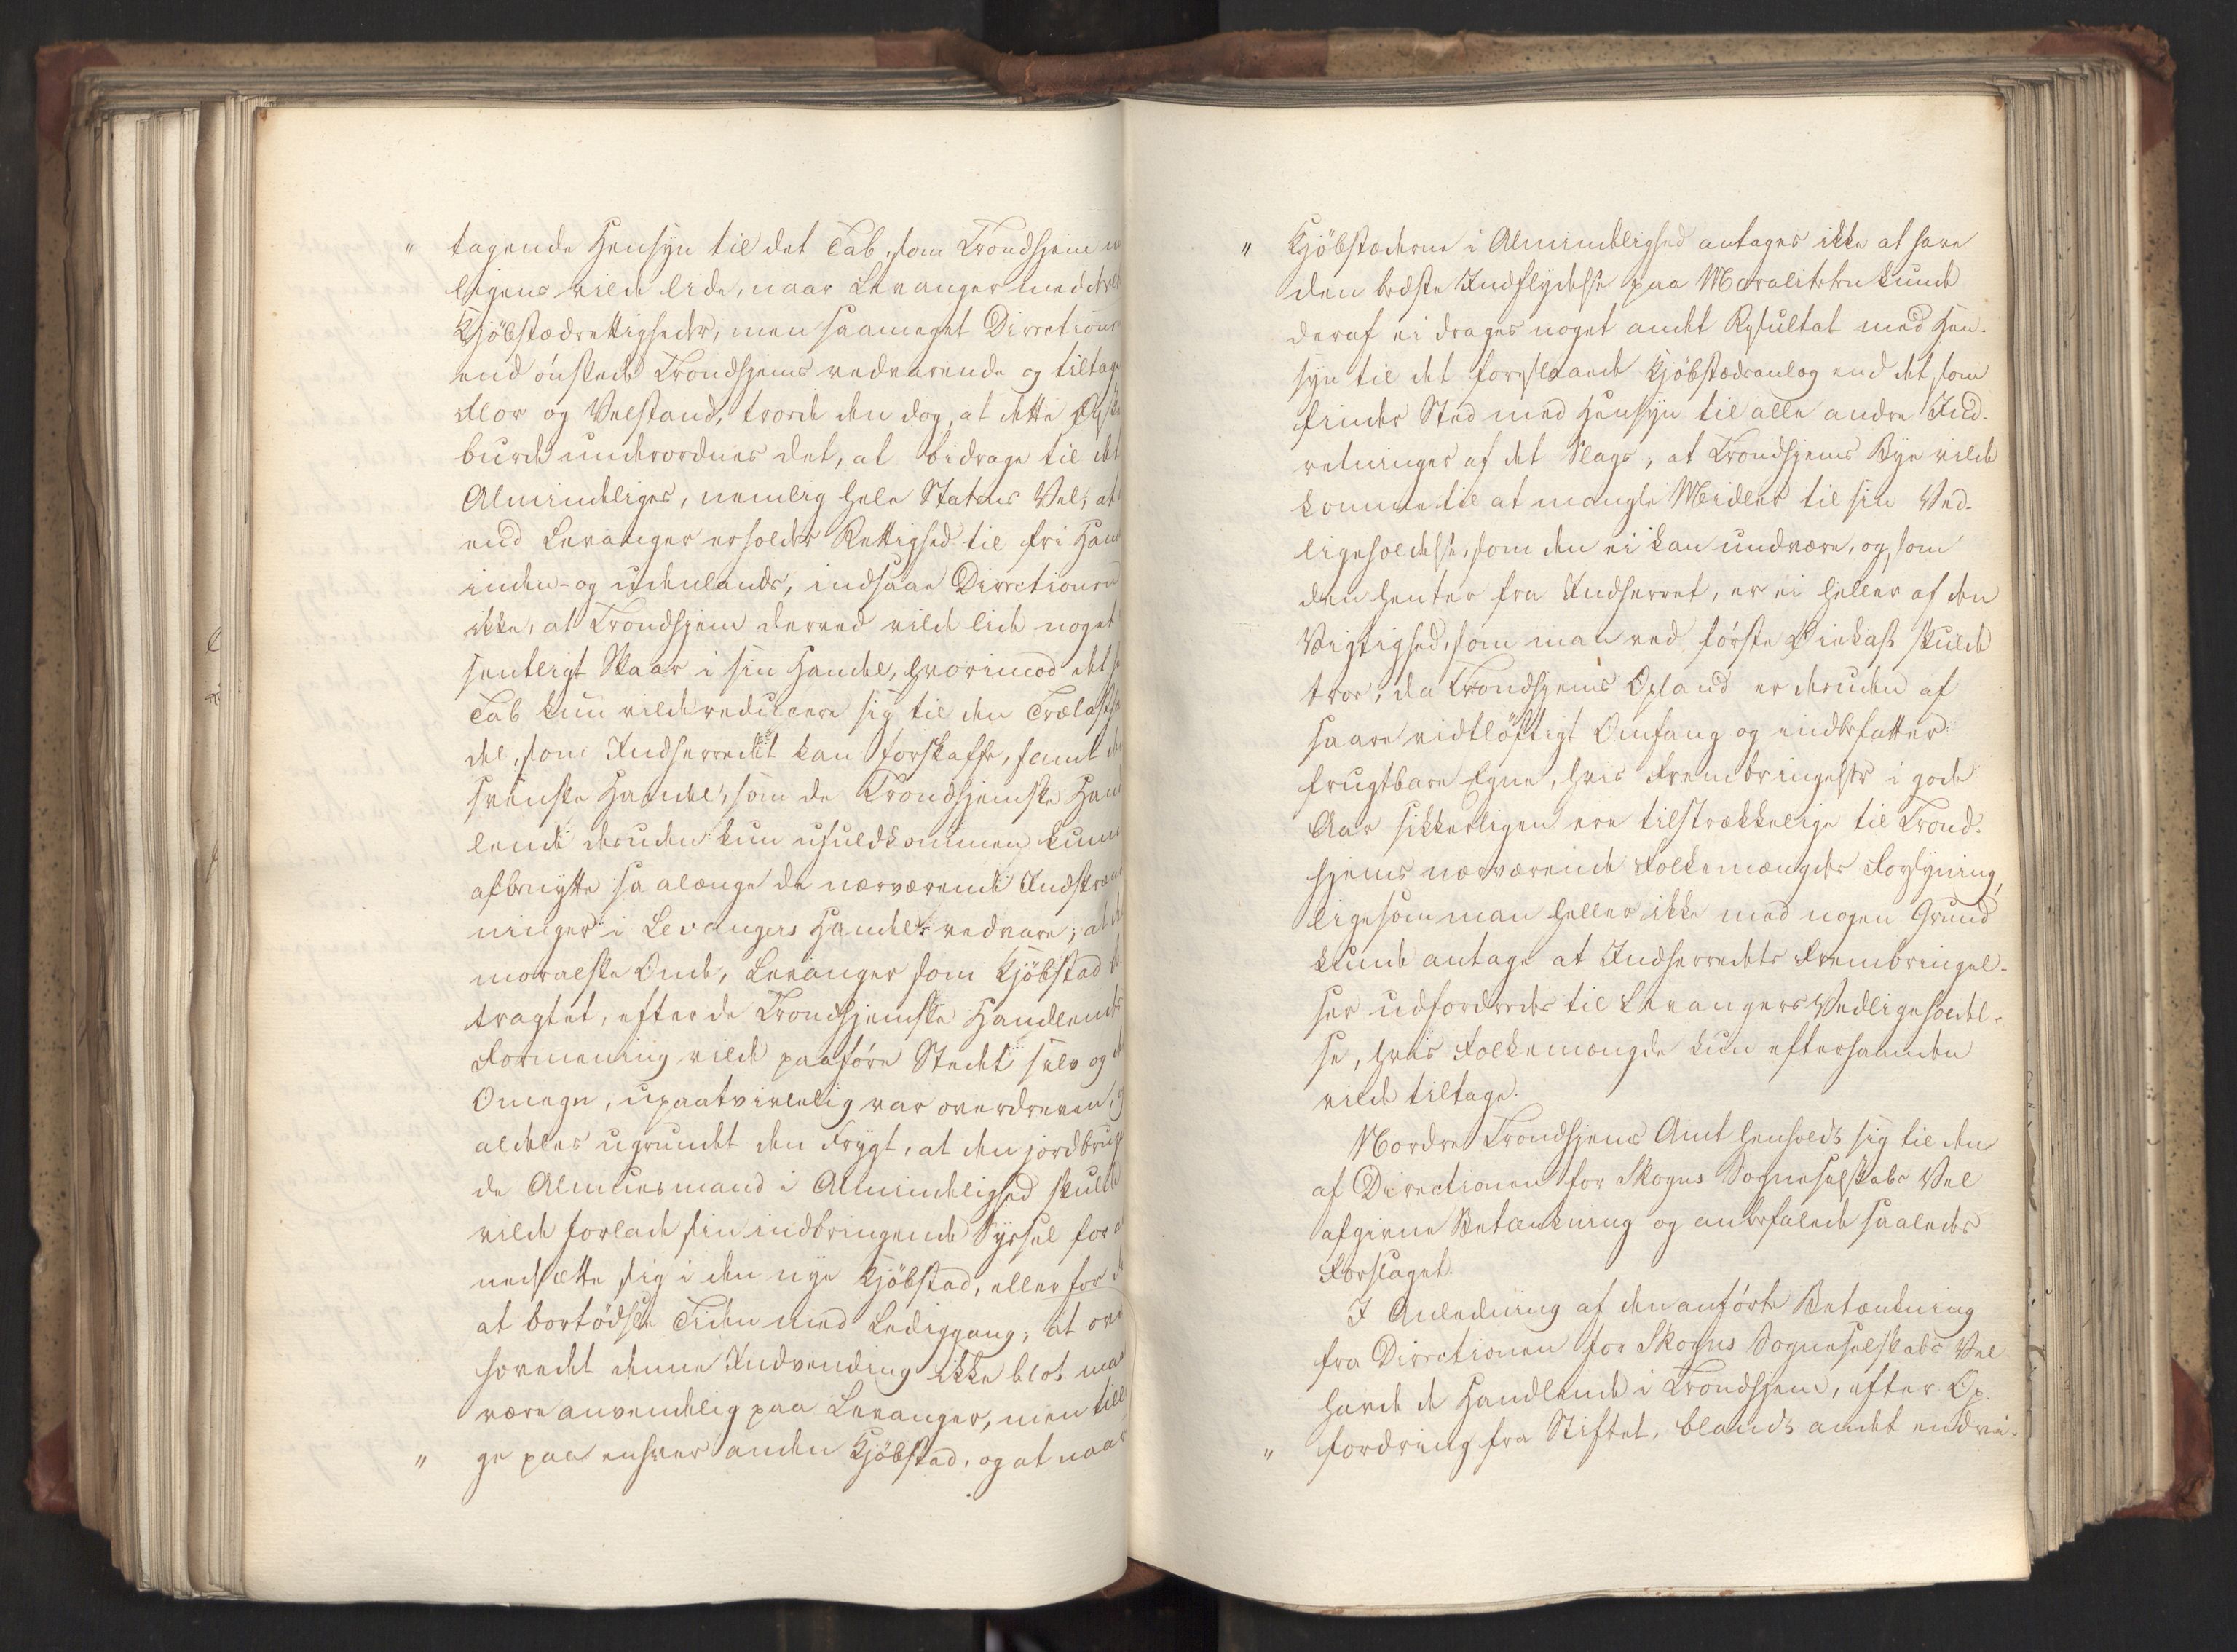 " tagende Hensyn til det Tab, som Trondhjem
ligens vilde lide, naar Levanger meddeeltes
Kjöbstædrettigheder, men saameget Directionen
end önskede Trondhjems vedvarende og tiltag
Flor og Velstand, troede den dog, at dette
burde underordnes det, at bidrage til det
Almindeliges, nemlig hele Statens Vel; at
end Levanger erholder Rettighed til fri Han
inden- og udenlands, indsaae Directionen
ikke, at Trondhjem derved vilde lide noget
sentligt Skaar i sin Handel, hvorimod det
Tab kun vilde reducere sig til den Trælasth
del, som Indherredet kan forskaffe, samt d
svenske Handel, som de Trondhjemske Han
lende desuden kun ufuldkommen kunn
afbenytte saalænge de nærværende Indskræn
ninger i Levangers Handel vedvare; at d
moralske Onde, Levanger som Kjöbstad
tragtet, efter de Trondhjemske Handlendes
Formening vilde paaföre Stedet selv og d
Omegn, upaatvivlelig var overdreven,
aldeles ugrundet den Frygt, at den jordbrug
de Almuesmand i Almindelighed skulde
vilde forlade sin indbringende Syssel for a
nedsætte sig i den nye Kjöbstad, eller for d
at bortödsle Tiden med Lediggang; at ove
hovedet denne Indvending ikke blot maa
være anvendelig paa Levanger, men till
" ge paa enhver anden Kjöbstad, og at naar
" Kjöbstæderne i Almindelighed antages ikke at have
den bedste Indflydelse paa Moraliteten kunde
deraf ei drages noget andet Resultat med Hen-
syn til det foreslaaede Kjöbstædanlæg end det som
finder Sted med Hensyn til alle andre Ind-
retninger af det Slags; at Trondhjems Bye vilde
komme til at mangle Midler til sin Ved-
ligeholdelse, som den ei kan undvære, og som
den henter fra Indherret, er ei heller af den
Vigtighed, som man ved förste Öiekast skulde
troe, da Trondhjems Opland er desuden af
saare vidtlöftigt Omfang og indbefatter
frugtbare Egne, hvis Frembringelser i gode
Aar sikkerligen ere tilstrækkelige til Trond-
hjems nærværende Folkemængdes Forsyning,
ligesom man heller ikke med nogen Grund
kunde antage at Indherredets Frembringel-
ser udfordredes til Levangers Vedligeholdel-
se, hvis Folkemængde kun efterhaanden
vilde tiltage.
Nordre Trondhjems Amt henholdt sig til den
af Directionen for Skogns Sogneselskabs Vel
afgivne Betænkning og anbefalede saaledes
Forslaget.
I Anledning af den anförte Betænkning
fra Directionen for Skogns Sogneselskabs Vel
havde de Handlende i Trondhjem, efter Op-
" fordring fra Stiftet, blandt andet endvi-